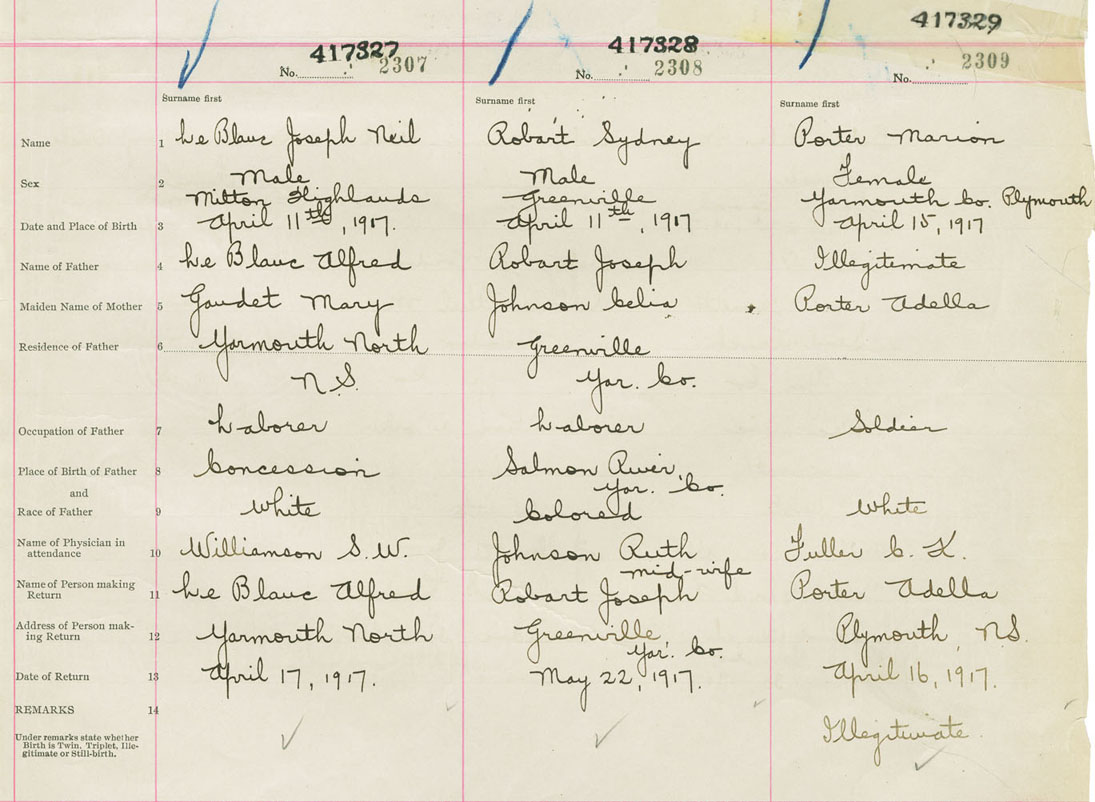 417327 417328 417329
No. 2307 No. 2308 No. 2309
Surname first Surname first Surname first
Name 1 Le Blanc Joseph Neil Robart Sydney Porter Marion
Sex 2 Male Male Female
Milton Highlands Greenville Yarmouth Co. Plymouth
Date and Place of Birth 3 April 11th, 1917. April 11th, 1917 April 15, 1917
Name of Father 4 Le Blanc Alfred Robart Joseph Illegitimate
Maiden Name of Mother 5 Gaudet Mary Johnson Celia Porter Adella
Residence of Father 6 Yarmouth North Greenville
N.S. Yar. Co.
Occupation of Father 7 Laborer Laborer Soldier
Place of Birth of Father 8 Concession Salmon River,
and Yar. Co.
Race of Father 9 White Colored White
Name of Physician in
attendance 10 Williamson S. W. Johnson Ruth Fuller C. K.
mid-wife
Name of Person making
Return 11 Le Blanc Alfred Robart Joseph Porter Adella
Address of Person mak-
ing Return 12 Yarmouth North Greenville, Plymouth, N.S.
Yar. Co.
Date of Return 13 April 17, 1917. May 22, 1917. April 16, 1917.
REMARKS 14
Under remarks state whether Illegitimate.
Birth is Twin, Triplet, Ille-
gitimate or Still-birth.